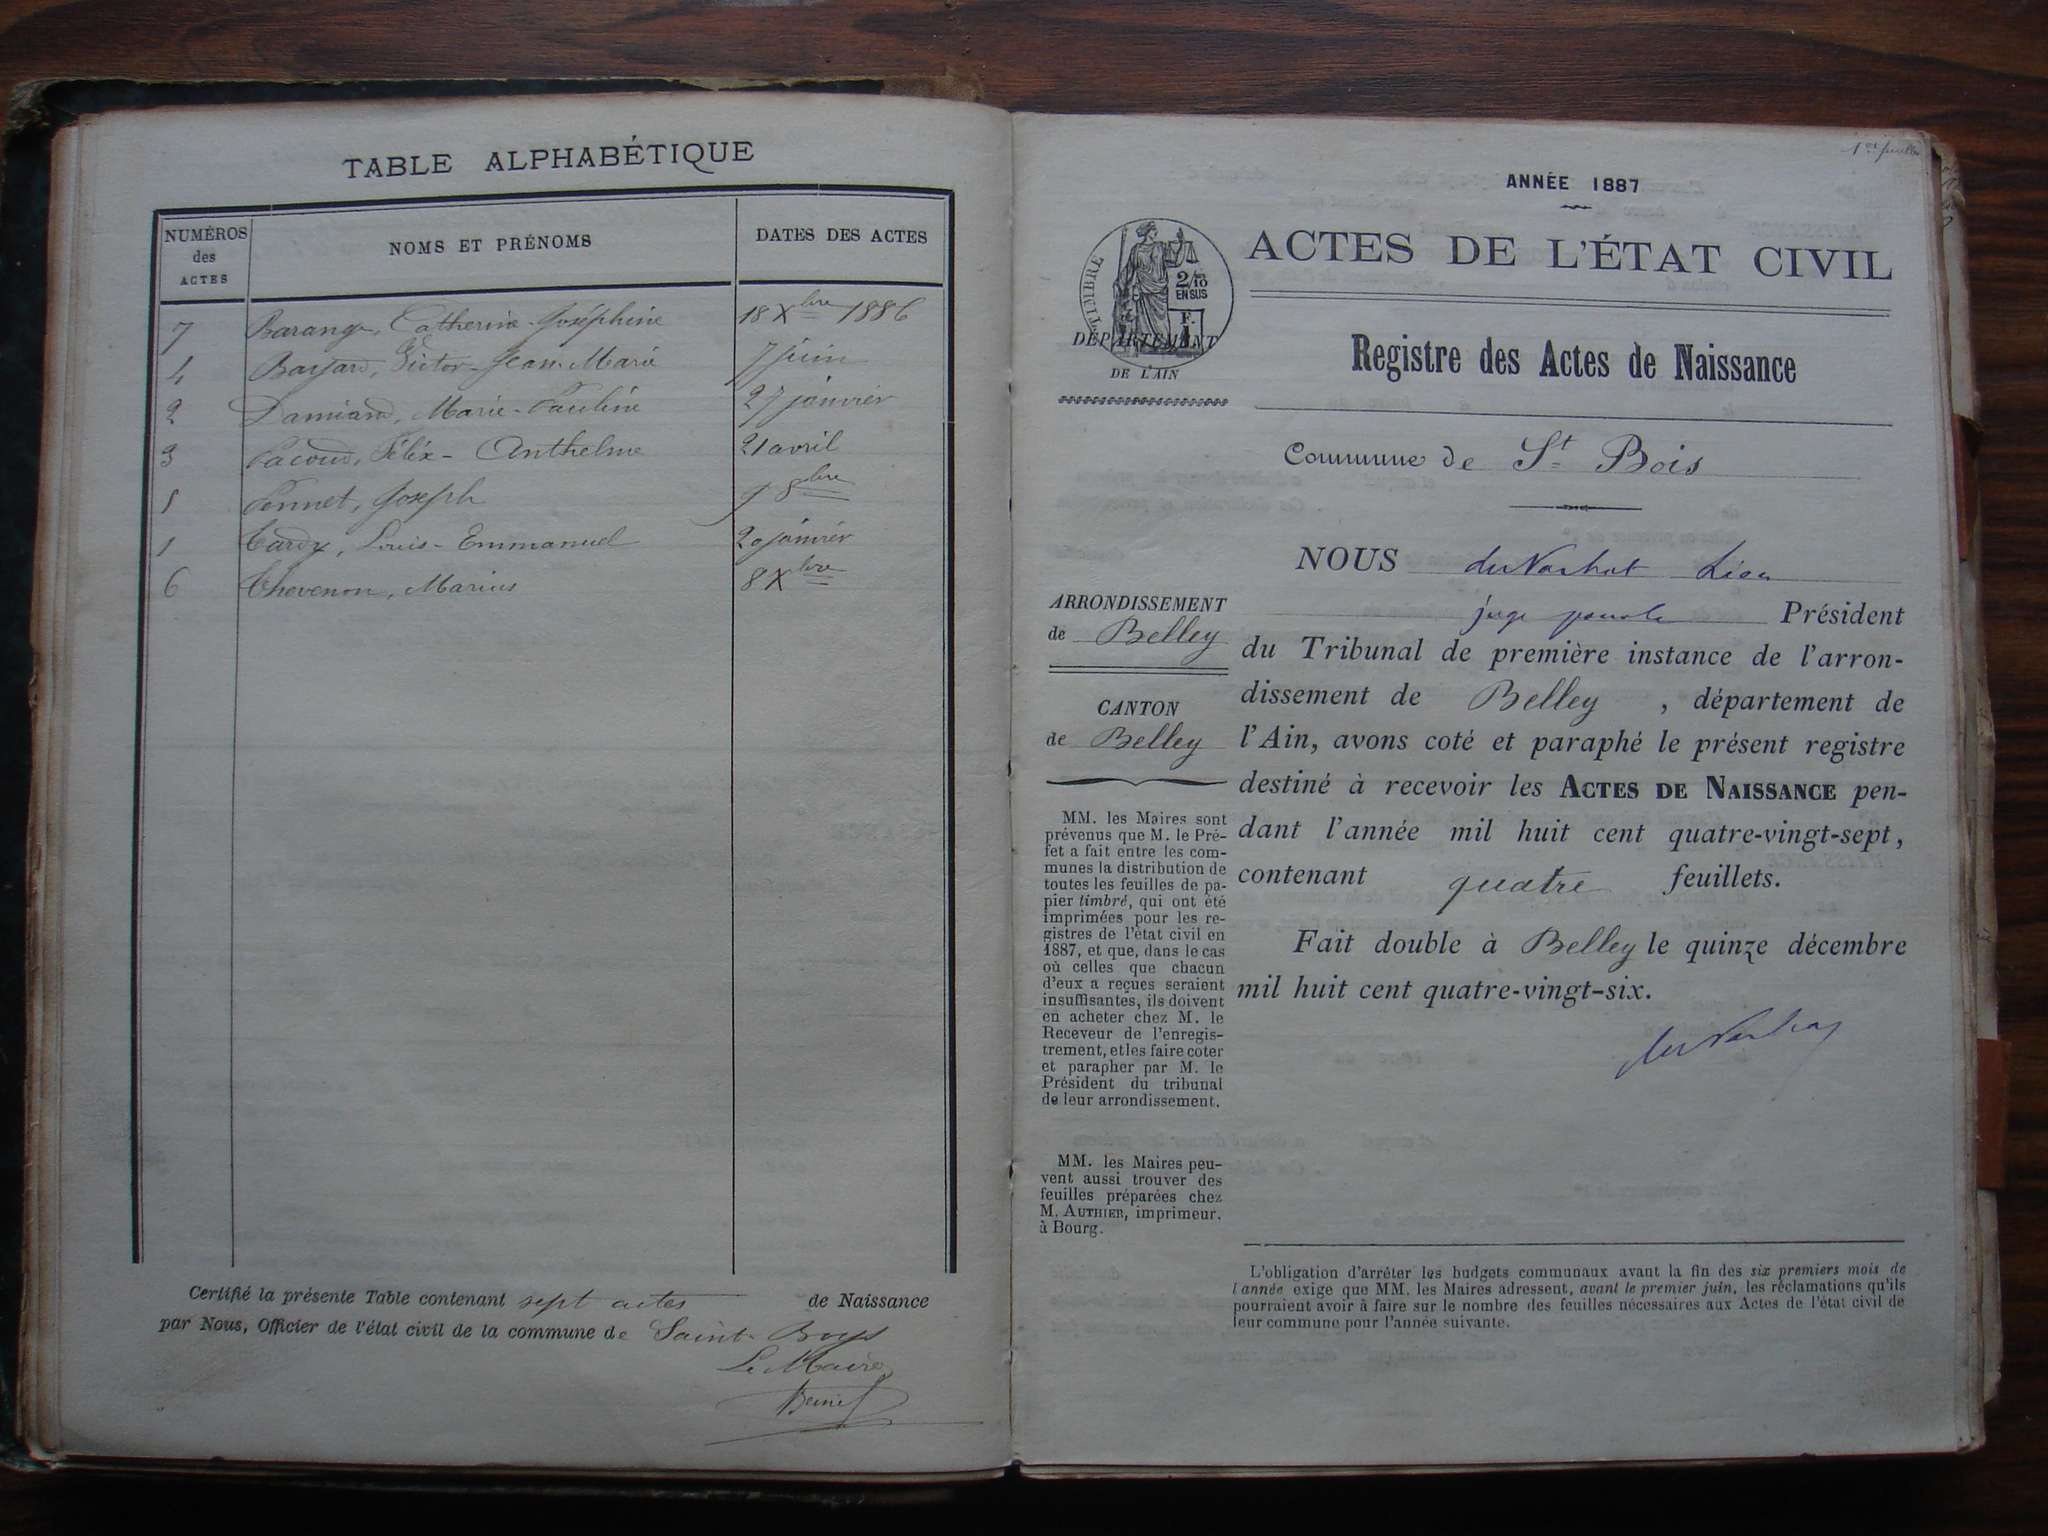 TABLE ALPHABÉTIQUE
NUMÉROS des ACTES
NOMS ET PRÉNOMS
DATES DES ACTES
7 Catherine-Joséphine 18 Xbre 1886
4 Victor-Jean-Marie 7 juin
2 Damiand, Marie-Pauline 27 janvier
3 Pacoud, Félix-Anthelme 21 avril
Joseph 9 8bre
1 Tardy, Louis-Emmanuel 20 janvier
6 Thevenon, Marius 8 Xbre
Certifié la présente Table contenant sept actes de Naissance
par Nous, Officier de l'état civil de la commune de Saint-Boys
Le Maire
1er feuillet
ANNÉE 1887
ACTES DE L'ÉTAT CIVIL
TIMBRE
2/10
EN SUS
F.
DÉPARTEMENT
DE L'AIN
Registre des Actes de Naissance
Commune de St Bois
ARRONDISSEMENT
de Belley
CANTON
de Belley
MM. les Maires sont
prévenus que M. le Pré-
fet a fait entre les com-
munes la distribution de
toutes les feuilles de pa-
pier timbré, qui ont été
imprimées pour les re-
gistres de l'état civil en
1887, et que, dans le cas
où celles que chacun
d'eux a reçues seraient
insuffisantes, ils doivent
en acheter chez M. le
Receveur de l'enregis-
trement, et les faire coter
et parapher par M. le
Président du tribunal
de leur arrondissement.
MM. les Maires peu-
vent aussi trouver des
feuilles préparées chez
M. AUTHIER, imprimeur,
à Bourg.
NOUS
juge Président
du Tribunal de première instance de l'arron-
dissement de Belley, département de
l'Ain, avons coté et paraphé le présent registre
destiné à recevoir les ACTES DE NAISSANCE pen-
dant l'année mil huit cent quatre-vingt-sept,
contenant quatre feuillets.
Fait double à Belley le quinze décembre
mil huit cent quatre-vingt-six.
L'obligation d'arrêter les budgets communaux avant la fin des six premiers mois de
l'année exige que MM. les Maires adressent, avant le premier juin, les réclamations qu'ils
pourraient avoir à faire sur le nombre des feuilles nécessaires aux Actes de l'état civil de
leur commune pour l'année suivante.